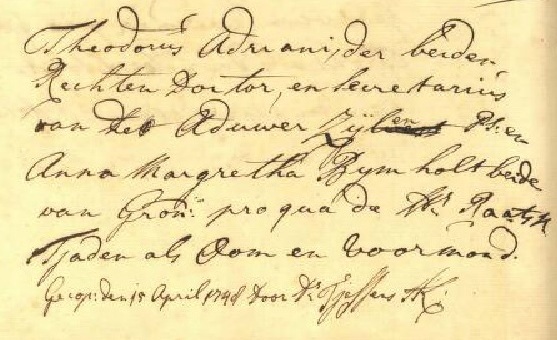 Theodorus Adriani, der beiden
Rechten Doctor, en secretarius
van de Aduwer Zijlen en
Anna Margretha Bymholt beide
van Gron: pro qua de Hr Raatsh
Tjaden als Oom en Voormond.
den 15 April 1748 Door Ds